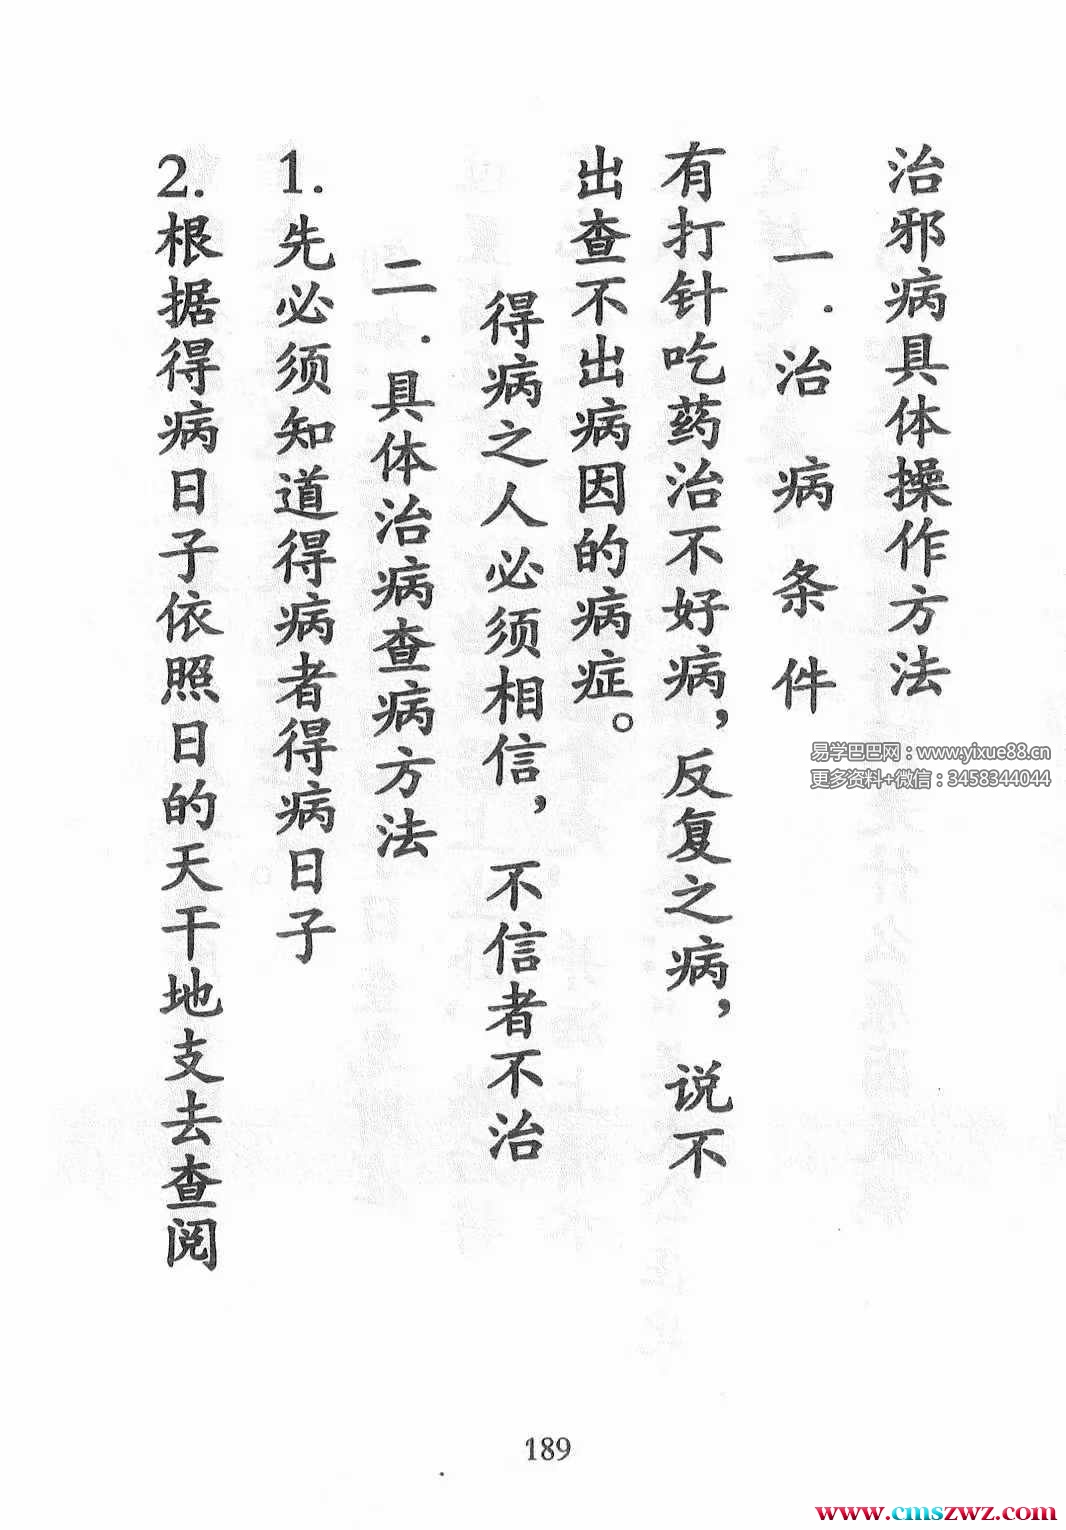 治邪病具体操作方法
一.治病条件
有打针吃药治不好病，反复之病，说不
出查不出病因的病症。
得病之人必须相信，不信者不治
二.具体治病查病方法
1.先必须知道得病者得病日子
2.根据得病日子依照日的天干地支去查阅
易学巴巴网：www.yixue88.cn
更多资料+微信：3458344044
189
www.cmszwz.com